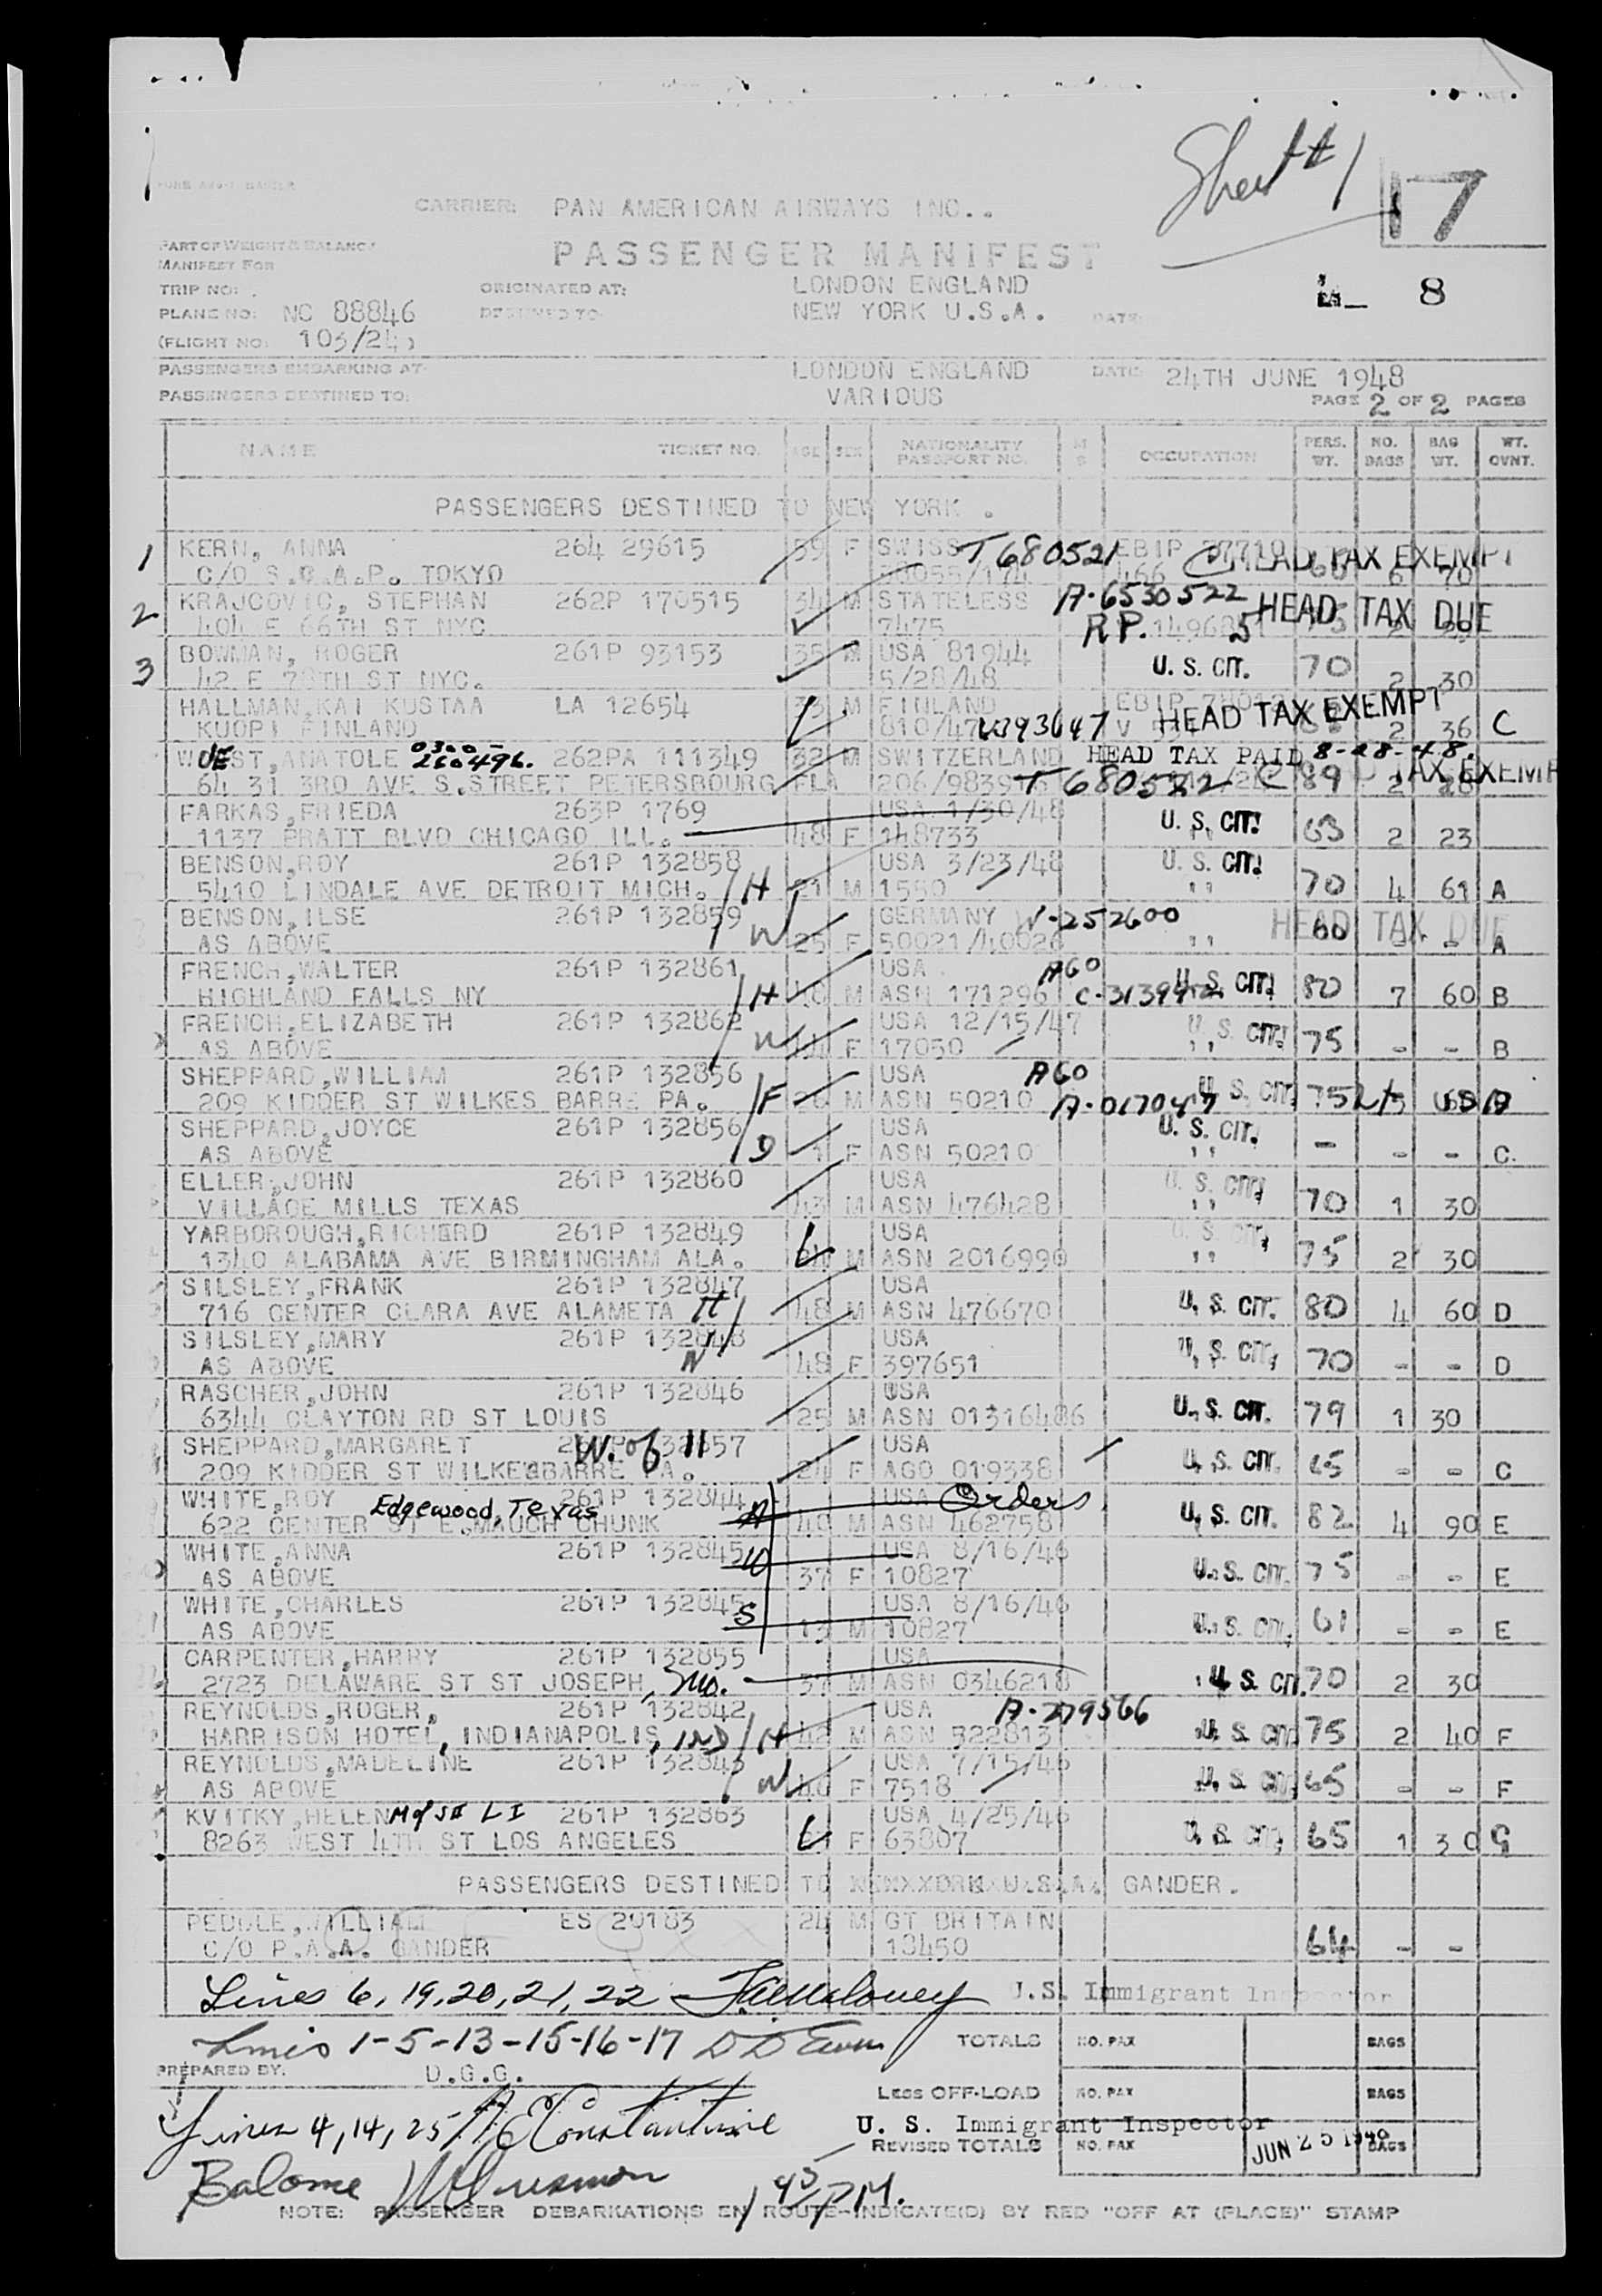 Sheet #1
17
CARRIER: PAN AMERICAN AIRWAYS INC..
PART OF WEIGHT & BALANCE
MANIFEST FOR
PASSENGER MANIFEST
TRIP NO:
ORIGINATED AT: LONDON ENGLAND
8
PLANE NO: NC 88846
DESTINED TO: NEW YORK U.S.A. DATE:
(FLIGHT NO: 103/24)
PASSENGERS EMBARKING AT: LONDON ENGLAND DATE: 24TH JUNE 1948
PASSENGERS DESTINED TO: VARIOUS PAGE 2 OF 2 PAGES
NAME TICKET NO. AGE SEX NATIONALITY PASSPORT NO. M S OCCUPATION PERS. WT. NO. BAGS BAG WT. WT. OVNT.
PASSENGERS DESTINED TO NEW YORK .
1 KERN, ANNA 264 29615 39 F SWISS T680521 HEAD TAX EXEMPT
C/O S.C.A.P. TOKYO 6 70
2 KRAJCOVIC, STEPHAN 262P 170515 34 M STATELESS A-6530522 HEAD TAX DUE
404 E 66TH ST NYC 7475 RP.
3 BOWMAN, ROGER 261P 93153 35 M USA 81944 U. S. CIT. 70
42 E 78TH ST NYC. 5/28/48 2 30
HALLMAN,KAI KUSTAA LA 12654 33 M FINLAND HEAD TAX EXEMPT
KUOPI FINLAND 810/47 2 36 C
WUEST,ANATOLE 0300- 260496. 262PA 111349 32 M SWITZERLAND HEAD TAX PAID 8-28-48.
64 31 3RD AVE S.STREET PETERSBOURG FLA T 680522 89 2 TAX EXEMP
FARKAS,FRIEDA 263P 1769 USA 1/30/48
1137 PRATT BLVD CHICAGO ILL. 48 F 148733 U. S. CIT. 63 2 23
BENSON,ROY 261P 132858 USA 3/23/48 U. S. CIT.
5410 LINDALE AVE DETROIT MICH. H 21 M 1550 '' 70 4 61 A
BENSON,ILSE 261P 132859 GERMANY V-252600 HEAD TAX DUE
AS ABOVE W 25 F 50021/40026 '' 60 - - A
FRENCH,WALTER 261P 132861 USA AGO
HIGHLAND FALLS NY H M ASN 171296 U. S. CIT. 80 7 60 B
FRENCH,ELIZABETH 261P 132862 USA 12/15/47 U. S. CIT.
AS ABOVE W 44 F 17050 '' 75 - - B
SHEPPARD,WILLIAM 261P 132856 USA AGO
209 KIDDER ST WILKES BARRE PA. F M ASN 50210 A-017047 U. S. CIT. 75
SHEPPARD,JOYCE 261P 132856 USA U. S. CIT.
AS ABOVE D 1 F ASN 50210 '' - - - C.
ELLER,JOHN 261P 132860 USA U. S. CIT.
VILLAGE MILLS TEXAS 43 M ASN 476428 '' 70 1 30
YARBOROUGH,RICHERD 261P 132849 USA U. S. CIT.
1340 ALABAMA AVE BIRMINGHAM ALA. M ASN 2016990 '' 75 2 30
SILSLEY,FRANK 261P 132847 USA
716 CENTER CLARA AVE ALAMETA H 48 M ASN 476670 U. S. CIT. 80 4 60 D
SILSLEY,MARY 261P 132848 USA
AS ABOVE W 48 F 397651 U. S. CIT. 70 - - D
RASCHER,JOHN 261P 132846 USA
6344 CLAYTON RD ST LOUIS 25 M ASN 01316486 U. S. CIT. 79 1 30
SHEPPARD,MARGARET W. of 11 USA
209 KIDDER ST WILKESBARRE PA. 24 F AGO 019338 U. S. CIT. 65 - - C
WHITE,ROY Edgewood, Texas 261P 132844 USA Orders
622 CENTER ST E.MAUCH CHUNK H 40 M ASN 462758 U. S. CIT. 82 4 90 E
WHITE,ANNA 261P 132845 USA 8/16/46
AS ABOVE W 37 F 10827 U. S. CIT. 75 - - E
WHITE,CHARLES 261P 132845 USA 8/16/46
AS ABOVE S 13 M 10827 U. S. CIT. 61 - - E
CARPENTER,HARRY 261P 132855 USA
2723 DELAWARE ST ST JOSEPH, Mo. 37 M ASN 0346218 U. S. CIT. 70 2 30
REYNOLDS,ROGER, 261P 132842 USA A-279566
HARRISON HOTEL, INDIANAPOLIS, IND H 42 M ASN 322813 U. S. CIT. 75 2 40 F
REYNOLDS,MADELINE 261P 132843 USA 7/15/46
AS ABOVE W 40 F 7518 U. S. CIT. 65 - - F
KVITKY,HELEN 261P 132863 USA 4/25/46
8263 WEST 4TH ST LOS ANGELES F 63807 U. S. CIT. 65 1 30 G
PASSENGERS DESTINED TO GANDER.
PEDDLE,WILLIAM ES 20183 24 M GT BRITAIN
C/O P.A.A. GANDER 13450 64 - -
Lines 6, 19, 20, 21, 22 U.S. Immigrant Inspector
Lines 1-5-13-15-16-17 TOTALS NO. PAX BAGS
PREPARED BY: D.G.G.
LESS OFF-LOAD NO. PAX BAGS
Lines 4, 14, 25 Constantine U. S. Immigrant Inspector
REVISED TOTALS NO. PAX JUN 25 1948 BAGS
Balance 1 45 PM.
NOTE: PASSENGER DEBARKATIONS EN ROUTE-INDICATE(D) BY RED "OFF AT (PLACE)" STAMP